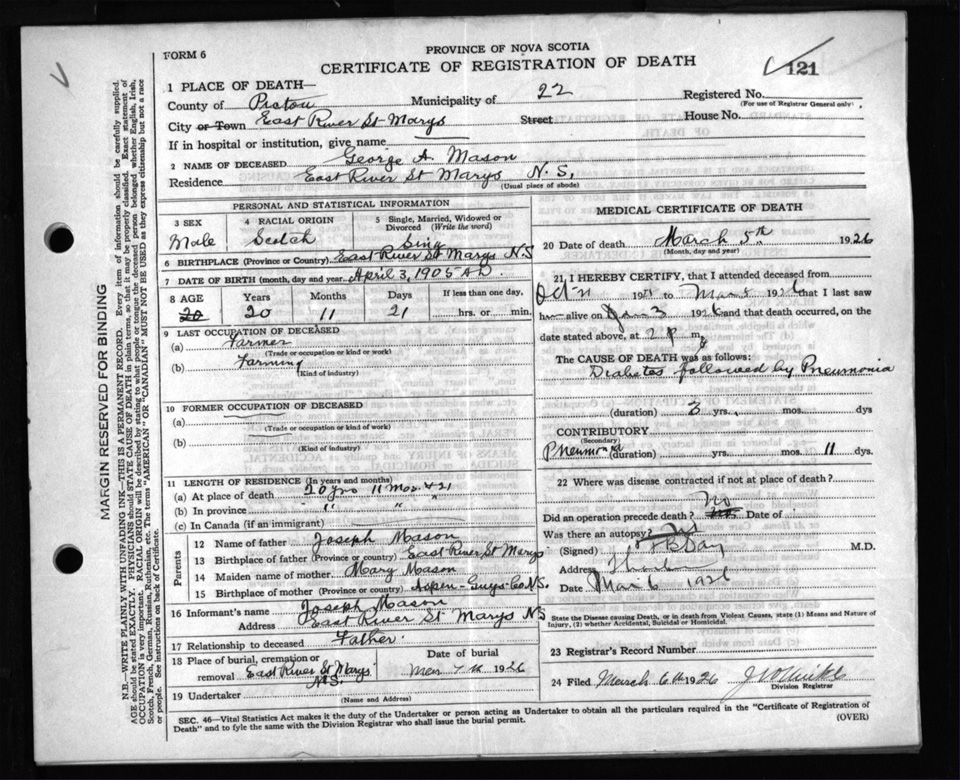 FORM 6
PROVINCE OF NOVA SCOTIA
CERTIFICATE OF REGISTRATION OF DEATH
121
1 PLACE OF DEATH—
County of Pictou Municipality of 22 Registered No.
(For use of Registrar General only)
City or Town East River St Marys Street House No.
If in hospital or institution, give name
2 NAME OF DECEASED George A. Mason
Residence East River St Marys N. S,
(Usual place of abode)
PERSONAL AND STATISTICAL INFORMATION
3 SEX Male
4 RACIAL ORIGIN Scotch
5 Single, Married, Widowed or Divorced (Write the word) Sing
6 BIRTHPLACE (Province or Country) East River St Marys N.S
7 DATE OF BIRTH (month, day and year) April 3, 1905 AD
8 AGE Years Months Days If less than one day,
20 20 11 21 hrs. or min.
9 LAST OCCUPATION OF DECEASED
(a) Farmer
(Trade or occupation or kind or work)
(b) Farming
(Kind of industry)
10 FORMER OCCUPATION OF DECEASED
(a)
(Trade or occupation or kind of work)
(b)
(Kind of industry)
11 LENGTH OF RESIDENCE (In years and months)
(a) At place of death 20 yrs 11 Mos. & 21
(b) In province " " "
(c) In Canada (if an immigrant)
Parents
12 Name of father Joseph Mason
13 Birthplace of father (Province or country) East River St Marys
14 Maiden name of mother Mary Mason
15 Birthplace of mother (Province or country) Aspen-Guys-Co N.S.
16 Informant's name Joseph Mason
Address East River St Marys N S
17 Relationship to deceased Father.
18 Place of burial, cremation or removal East River St Marys N.S.
Date of burial
Mar 7 th 1926
19 Undertaker
(Name and Address)
MEDICAL CERTIFICATE OF DEATH
20 Date of death March 5th 1926
(Month, day and year)
21. I HEREBY CERTIFY, that I attended deceased from
Oct 19 to Mar 5 1926 that I last saw
h alive on 1926 and that death occurred, on
date stated above, at 2 P m
The CAUSE OF DEATH was as follows:
Diabetes followed by Pneumonia
(duration) 3 yrs. mos. dys
CONTRIBUTORY
(Secondary)
Pneumonia (duration) yrs. mos. 11 dys.
22 Where was disease contracted if not at place of death?
Did an operation precede death? No Date of
Was there an autopsy? No
(Signed) M.D.
Address
Date Mar 6 1926
State the Disease causing Death, or in death from Violent Causes, state (1) Means and Nature of
Injury, (2) whether Accidental, Suicidal or Homicidal.
23 Registrar's Record Number
24 Filed March 6th 1926
Division Registrar
SEC. 46—Vital Statistics Act makes it the duty of the Undertaker or person acting as Undertaker to obtain all the particulars required in the "Certificate of Registration of
Death" and to fyle the same with the Division Registrar who shall issue the burial permit.
(OVER)
MARGIN RESERVED FOR BINDING
N.B.—WRITE PLAINLY, WITH UNFADING INK—THIS IS A PERMANENT RECORD. Every item of information should be carefully supplied.
AGE should be stated EXACTLY. PHYSICIANS should STATE CAUSE OF DEATH in plain terms, so that it may be properly classified. Exact statement of
OCCUPATION is very important. RACIAL ORIGIN will be described by stating to what people or tongue the deceased person belonged, whether English, Irish,
Scotch, French, German, Russian, Ruthenian, etc. The terms "AMERICAN" OR "CANADIAN" MUST NOT BE USED as they express citizenship but not a race
or people. See instructions on back of Certificate.